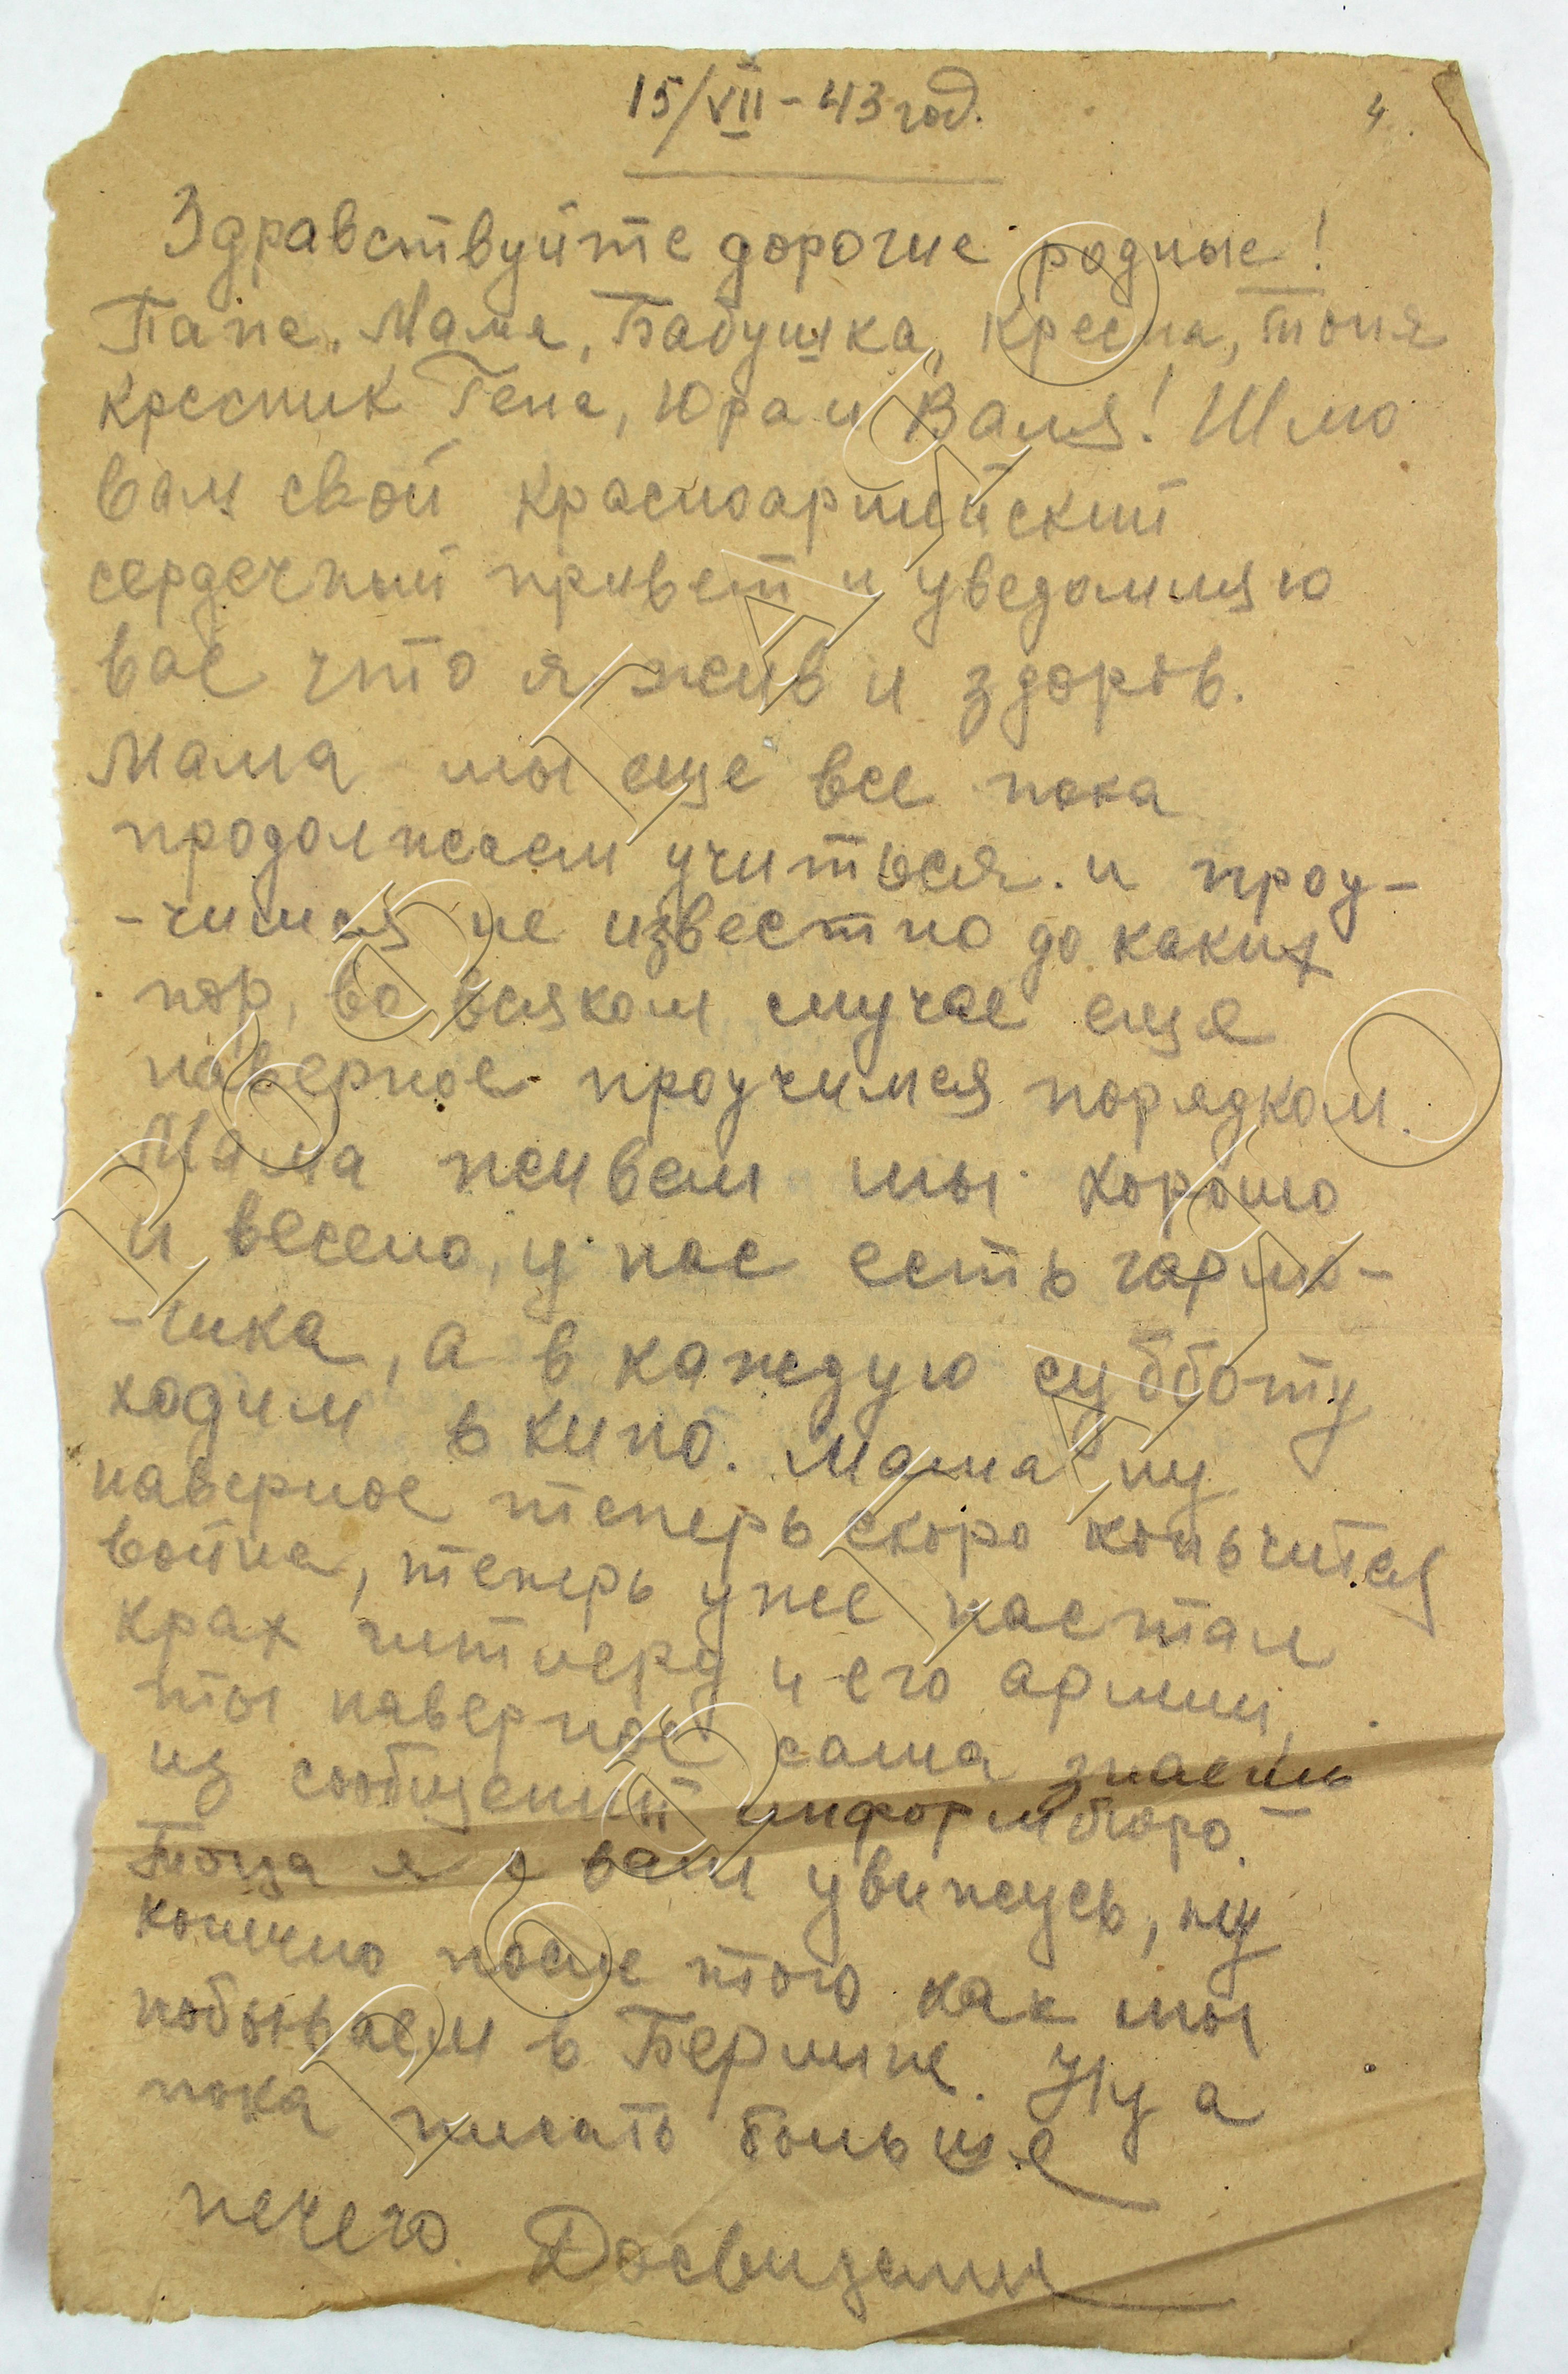 15/VII - 43 год.
4.
Здравствуйте дорогие родные!
Папа, Мама, Бабушка, Кресна, Тоня
кресник Гена, Юра и Валя! Шлю
вам свой красноармейский
сердечный привет и уведомляю
вас что я жив и здоров.
Мама мы еще все пока
продолжаем учиться. и проу-
-чимся не известно до каких
пор, во всяком случае еще
наверное проучимся порядком.
Мама живем мы хорошо
и весело, у нас есть гармо-
-шка, а в каждую субботу
ходим в кино. Мама ну
наверное теперь скоро коньчится
война, теперь уже настал
крах гитлера и его армии,
ты наверное сама знаешь
из сообщений информбюро.
Тогда я с вами увижусь, ну
конечно после того как мы
побываем в Берлине. Ну а
пока писать больше
нечего. Досвидания